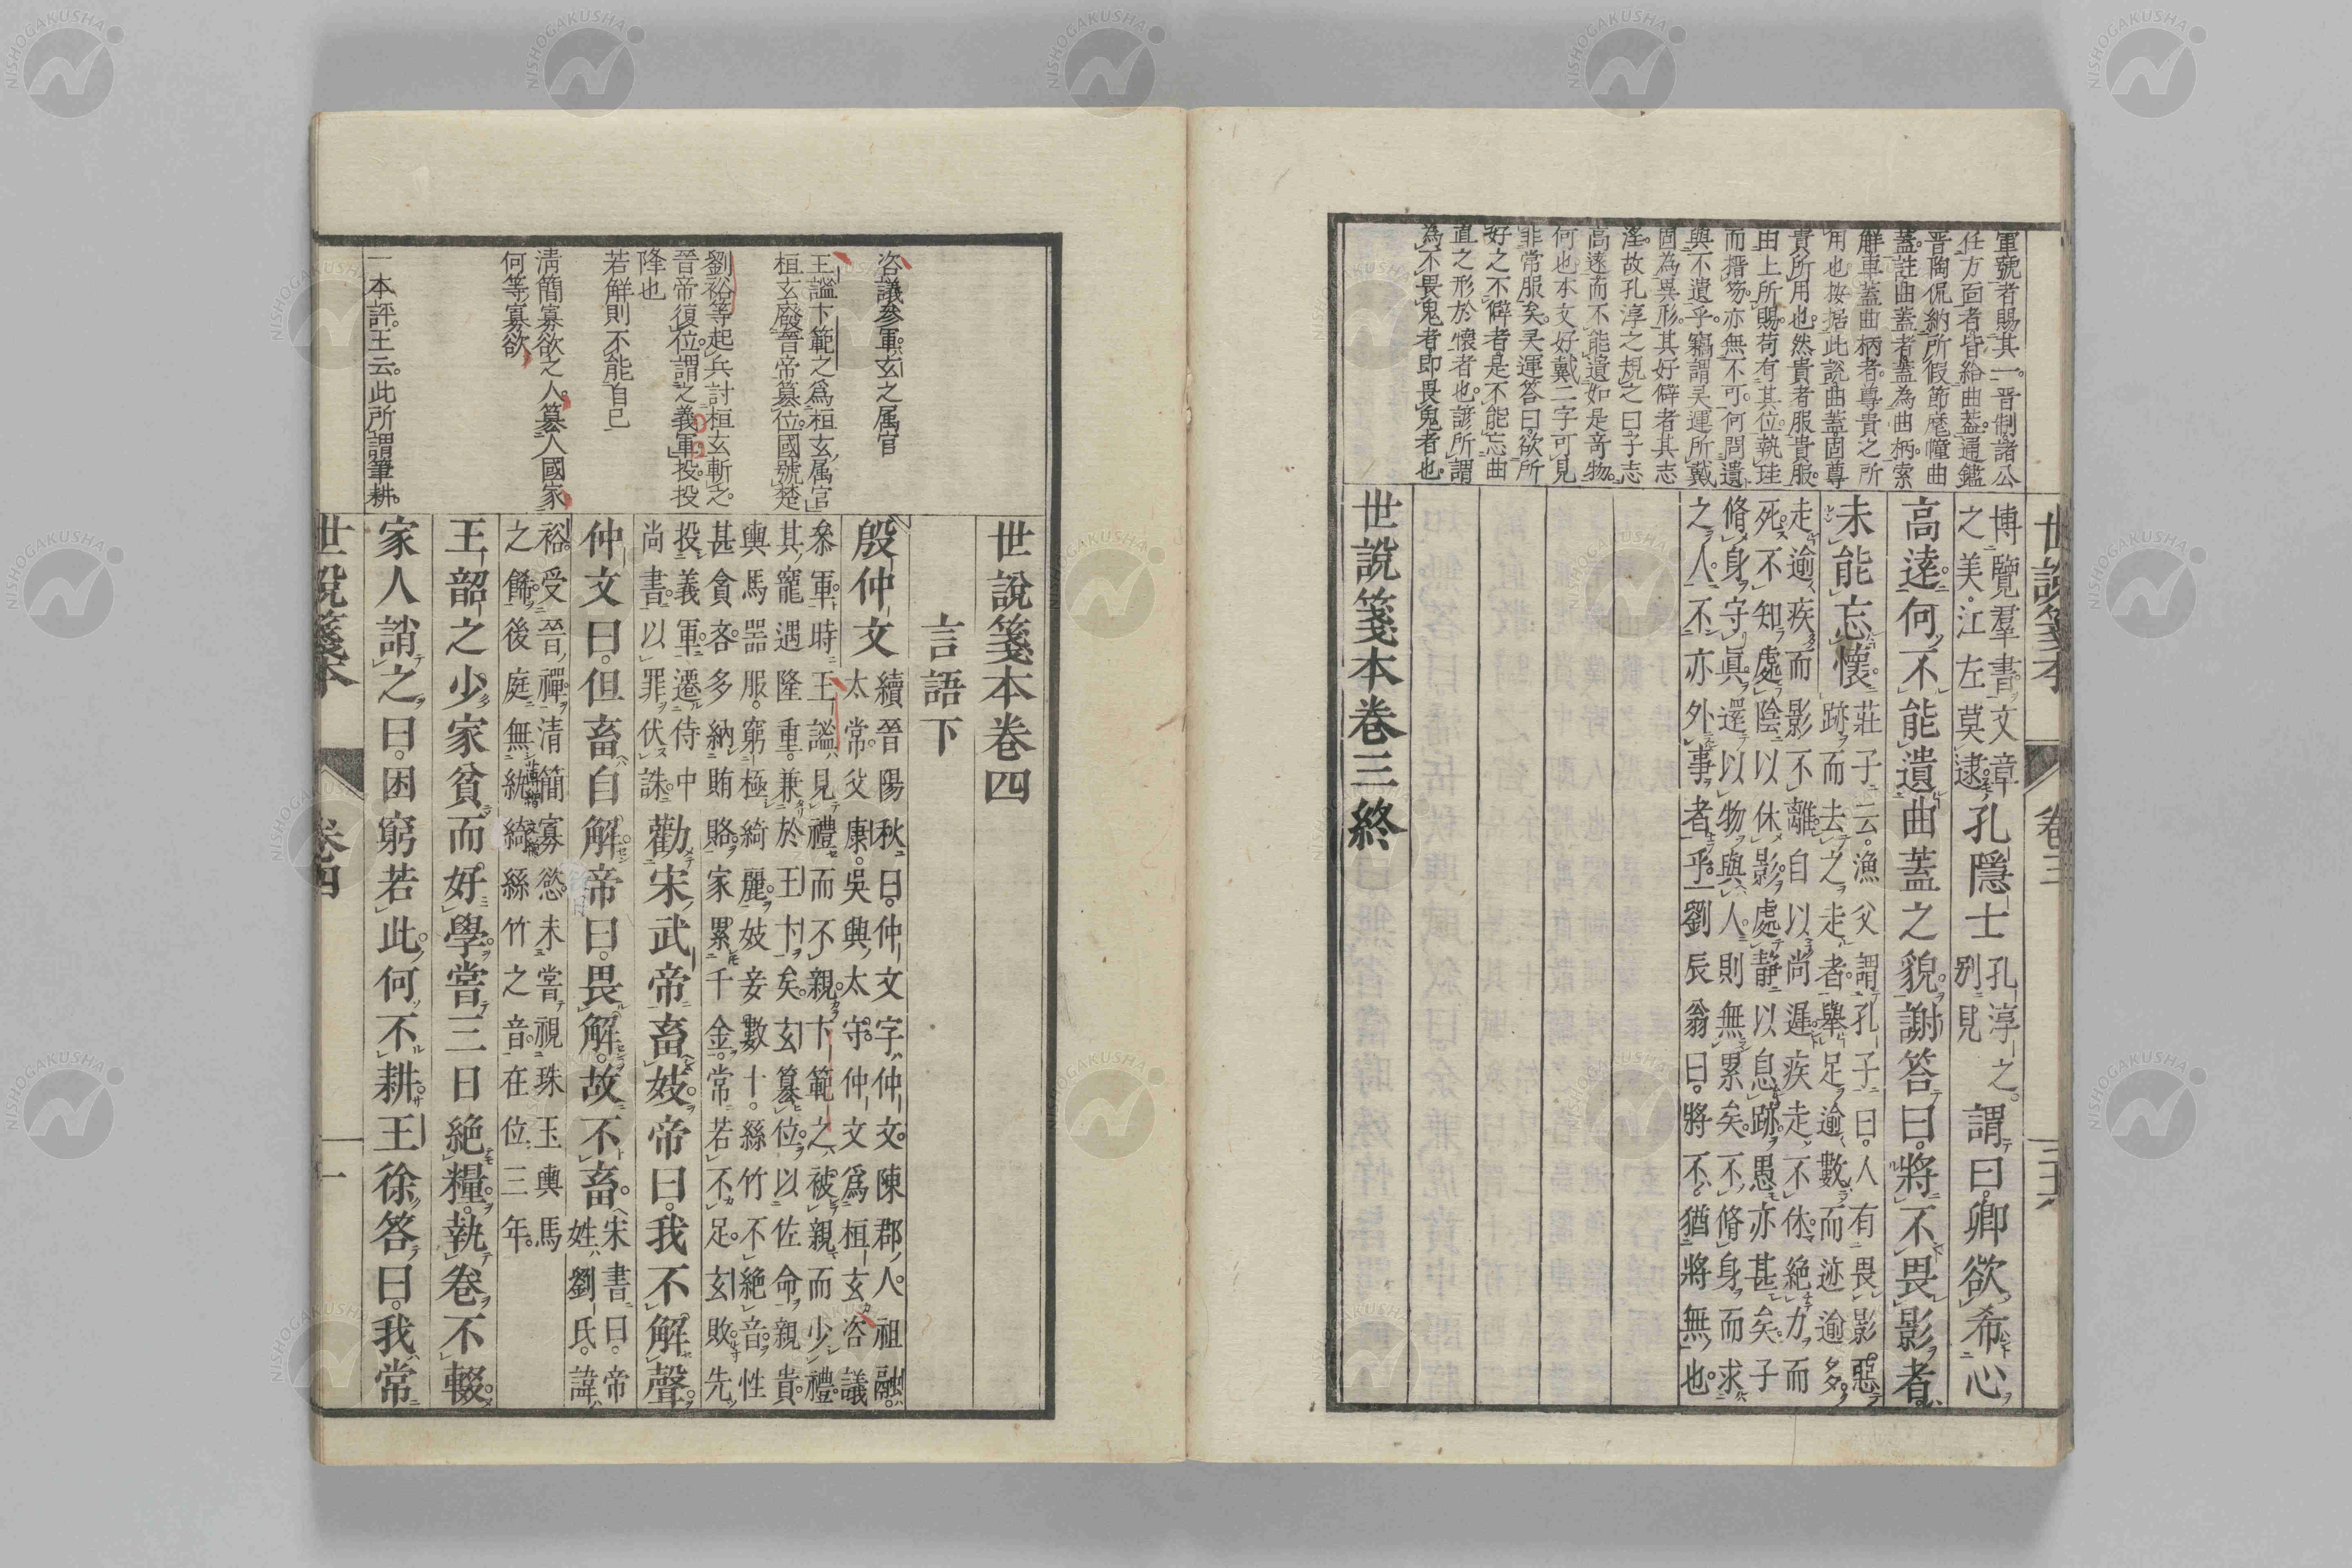 軍號者賜其一。晉制諸公
任方面者皆給曲蓋。通鑑
晉陶侃納所假節麾幢曲
蓋。註曲蓋者蓋為曲柄。索
解車蓋曲柄者。尊貴之所
用也。按据此説曲蓋固尊
貴所用也。然貴者服貴服。
由上所賜。苟有其位。執珪
而搢笏。亦無不可。何問遺
與不遺乎。竊謂灵運所戴
固為異形。其好僻者其志
淫。故孔淳之規之曰子志
高遠而不能遺如是奇物。
何也。本文好戴二字可見
非常服矣。灵運答曰。欲所
好之不僻者。是不能忘曲
直之形於懷者也。諺所謂
為不畏鬼者即畏鬼者也。
世說箋本 卷三
博覽羣書。文章之美。江左莫逮。孔隱士孔淳之。別見謂曰。卿欲希心
高達。何不能遺曲蓋之貌。謝答曰。將不畏影者。
未能忘懷。莊子云。漁父謂孔子曰。人有畏影惡
跡而去之走者。舉足逾數而迹逾多。
走逾疾而影不離。自以尚遲疾走不休。絶力而
死。不知處陰以休影。處靜以息跡。愚亦甚矣。子
脩身守眞。還以物與人。則無累矣。不脩身而求
之人。不亦外事者乎。劉辰翁曰。將不。猶將無也。
世說箋本卷三終
咨議參軍。玄之属官
王謐卞範之為桓玄属官
桓玄廢晉帝簒位。國號楚
劉裕等起兵討桓玄斬之。
晉帝復位。謂之義軍。投投
降也
若解則不能自已
清簡寡欲之人。簒人國家
何等寡欲
一本評。王云。此所謂筆耕。
世說箋本卷四
言語下
殷仲文續晉陽秋曰。仲文字仲文。陳郡人。祖融。
太常。父康。吳興太守。仲文為桓玄咨議
參軍。時王謐見禮而不親。卞範之被親而少禮。
其寵遇隆重。兼於王卞矣。玄簒位。以佐命親貴。
輿馬器服。窮極綺麗。妓妾數十。絲竹不絶音。性
甚貪吝。多納賄賂。家累千金。常若不足。玄敗先
投義軍。遷侍中
尚書。以罪伏誅勸宋武帝畜妓。帝曰。我不解聲。
仲文曰。但畜自解。帝曰。畏解。故不畜。宋書曰。帝
姓劉氏。諱
裕。受晉禪。清簡寡慾。未嘗視珠玉輿馬
之餙。後庭無紈綺絲竹之音。在位三年。
王韶之少家貧而好學。嘗三日絶糧。執卷不輟。
家人誚之曰。困窮若此。何不耕。王徐答曰。我常
世說箋本 卷四 一